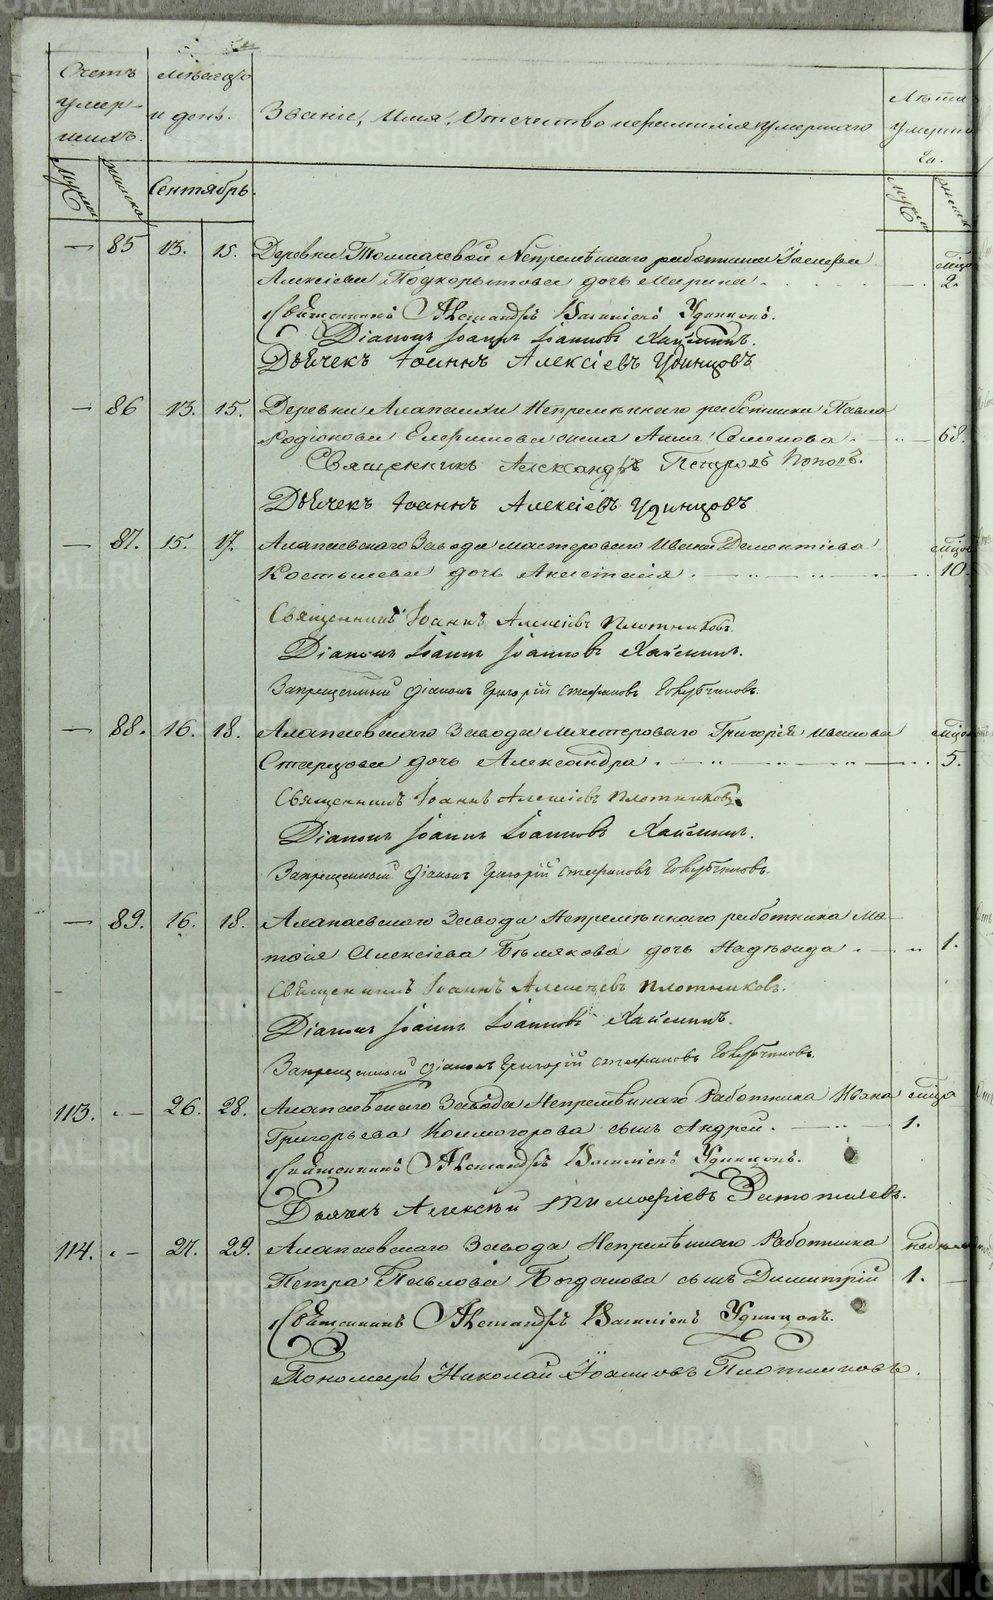 METRIKI.GASO-URAL.RU
Счетъ умер-шихъ.
Мѣсяцъ и день.
Званіе, Имя, Отчество и фамилія умершаго
Лѣта умерша-го.
Мужска
женска
Сентябрь.
Мужск
женска
— 85 13. 15. Деревни Толмачевой Непремѣннаго работника Іосифа мѣсяц
Алексіева Подкорытова дочь Марина . 2.
Священникъ Александръ Васильевъ Удинцовъ.
Діаконъ Іоаннъ Іоанновъ Хлынинъ.
Дьячекъ Іоаннъ Алексіевъ Удинцовъ
— 86 13. 15. Деревни Алапаихи Непремѣннаго работника Павла
Родіонова Елфимова жена Анна Семенова . 68.
Священникъ Александръ Петровъ Поповъ.
Дьячекъ Іоаннъ Алексіевъ Удинцовъ
— 87. 15. 17. Алапаевскаго Завода мастероваго Ивана Дементіева мѣсяц
Костылева дочь Анастасія . 10.
Священникъ Іоаннъ Алексіевъ Плотниковъ.
Діаконъ Іоаннъ Іоанновъ Хлынинъ.
Запрещенный діаконъ Григорій Стефановъ
— 88. 16. 18. Алапаевскаго Завода Мастероваго Григорія Иванова мѣсяц
Старцова дочь Александра . 5.
Священникъ Іоаннъ Алексіевъ Плотниковъ.
Діаконъ Іоаннъ Іоанновъ Хлынинъ.
Запрещенный діаконъ Григорій Стефановъ
— 89. 16. 18. Алапаевскаго Завода Непремѣннаго работника Ма-
тѳія Алексіева Бѣлякова дочь Надежда . 1.
Священникъ Іоаннъ Алексѣевъ Плотниковъ.
Діаконъ Іоаннъ Іоанновъ Хлынинъ.
Запрещенный діаконъ Григорій Стефановъ
113. — 26. 28. Алапаевскаго Завода Непремѣннаго Работника Ивана мѣсяца
Григорьева Колмогорова сынъ Андрей . 1.
Священникъ Александръ Васильевъ Удинцовъ.
Дьячекъ Алексѣй Тимофіевъ Затопляевъ.
114. — 27. 29. Алапаевскаго Завода Непремѣннаго Работника недѣл
Петра Павлова Богданова сынъ Димитрій 1. —
Священникъ Александръ Васильевъ Удинцовъ.
Пономарь Николай Іоанновъ Плотниковъ.